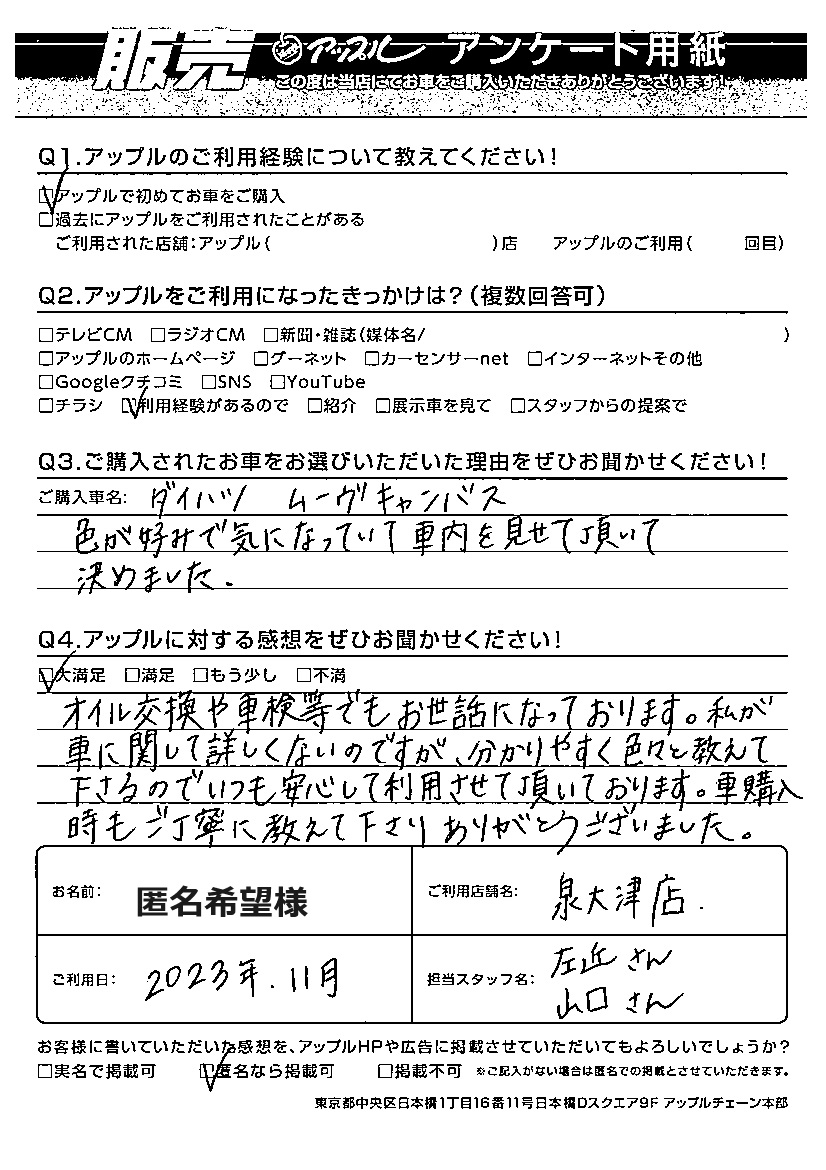 販売 アップル アンケート用紙
この度は当店にてお車をご購入いただきありがとうございます!
Q1.アップルのご利用経験について教えてください!
☑アップルで初めてお車をご購入
□過去にアップルをご利用されたことがある
ご利用された店舗:アップル( )店 アップルのご利用( 回目)
Q2.アップルをご利用になったきっかけは?(複数回答可)
□テレビCM □ラジオCM □新聞・雑誌(媒体名/ )
□アップルのホームページ □グーネット □カーセンサーnet □インターネットその他
□Googleクチコミ □SNS □YouTube
□チラシ ☑利用経験があるので □紹介 □展示車を見て □スタッフからの提案で
Q3.ご購入されたお車をお選びいただいた理由をぜひお聞かせください!
ご購入車名: ダイハツ ムーヴキャンバス
色が好みで気になっていて車内を見せて頂いて
決めました.
Q4.アップルに対する感想をぜひお聞かせください!
☑大満足 □満足 □もう少し □不満
オイル交換や車検等でもお世話になっております。私が
車に関して詳しくないのですが、分かりやすく色々と教えて
下さるのでいつも安心して利用させて頂いております。車購入
時もご丁寧に教えて下さりありがとうございました。
お名前: 匿名希望様 ご利用店舗名: 泉大津店.
ご利用日: 2023年.11月 担当スタッフ名: 左近さん
山口さん
お客様に書いていただいた感想を、アップルHPや広告に掲載させていただいてもよろしいでしょうか?
□実名で掲載可 ☑匿名なら掲載可 □掲載不可 ※ご記入がない場合は匿名での掲載とさせていただきます。
東京都中央区日本橋1丁目16番11号日本橋Dスクエア9F アップルチェーン本部